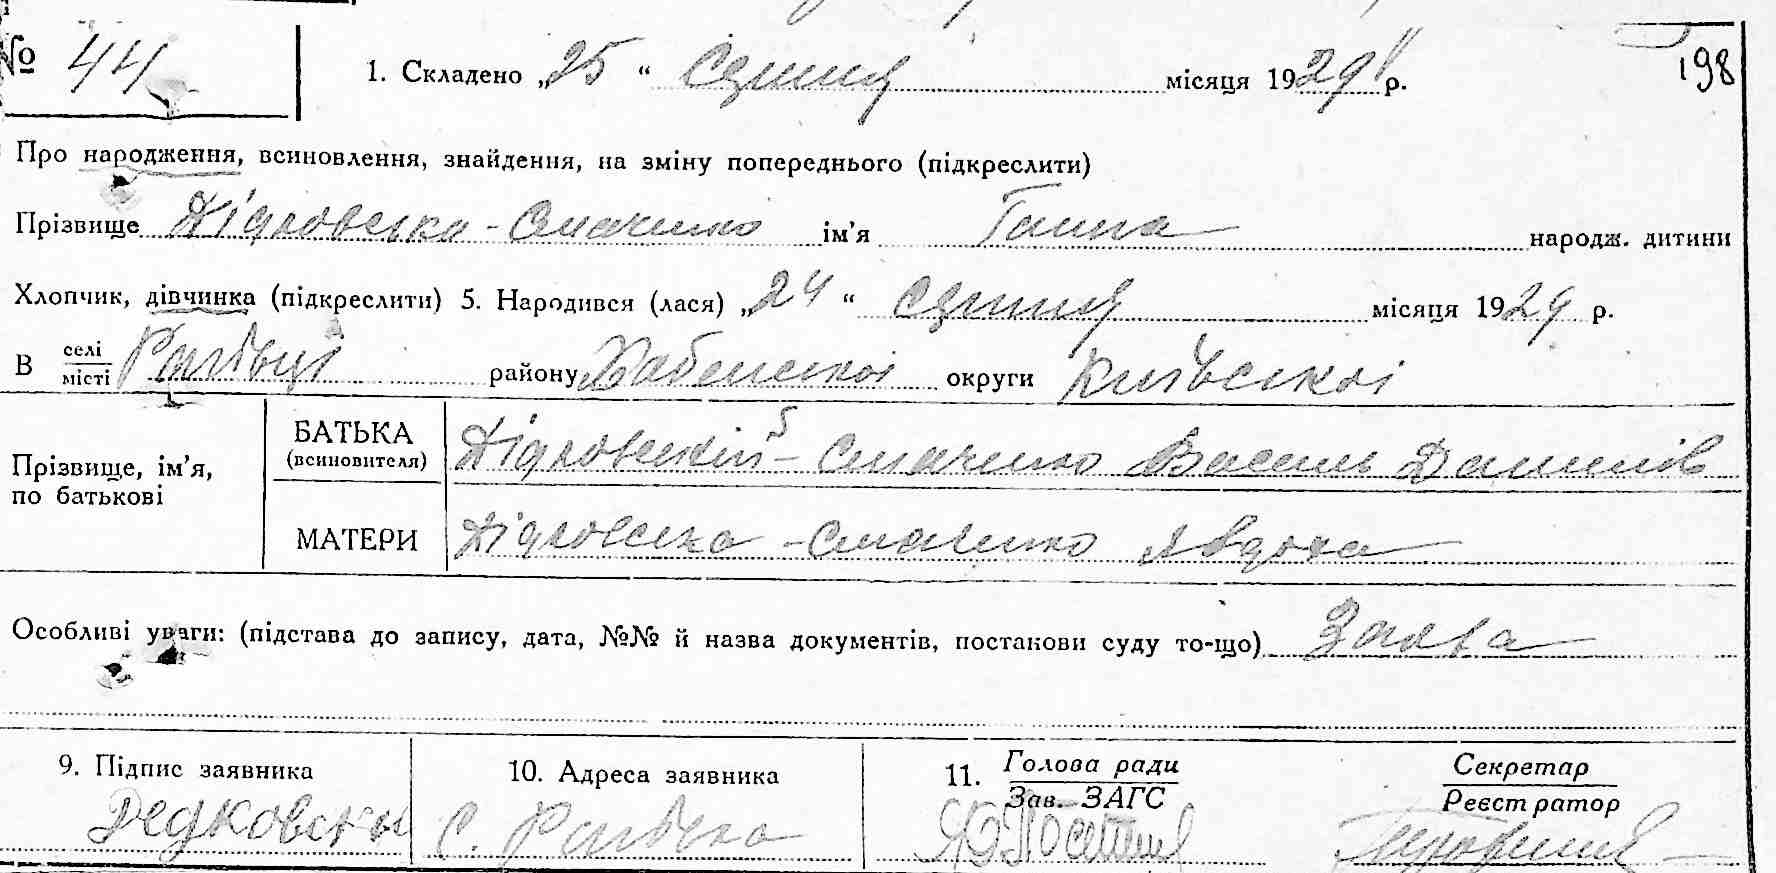 № 44
1. Складено „25“ Серпня місяця 1929 р.
198
Про народження, всиновлення, знайдення, на зміну попереднього (підкреслити)
Прізвище Дідковська-Смаченко ім’я Ганна народж. дитини
Хлопчик, дівчинка (підкреслити) 5. Народився (лася) „24“ Серпня місяця 1929 р.
В селі/місті Рагівці району Хабенської округи Київської
Прізвище, ім’я, по батькові
БАТЬКА (всиновителя) Дідковський-Смаченко Василь Данилів
МАТЕРИ Дідковська-Смаченко Явдоха
Особливі уваги: (підстава до запису, дата, №№ й назва документів, постакови суду то-що) Заява
9. Підпис заявника 10. Адреса заявника 11. Голова ради/Зав. ЗАГС Секретар/Реєстратор
Дедковскы С. Рагівка